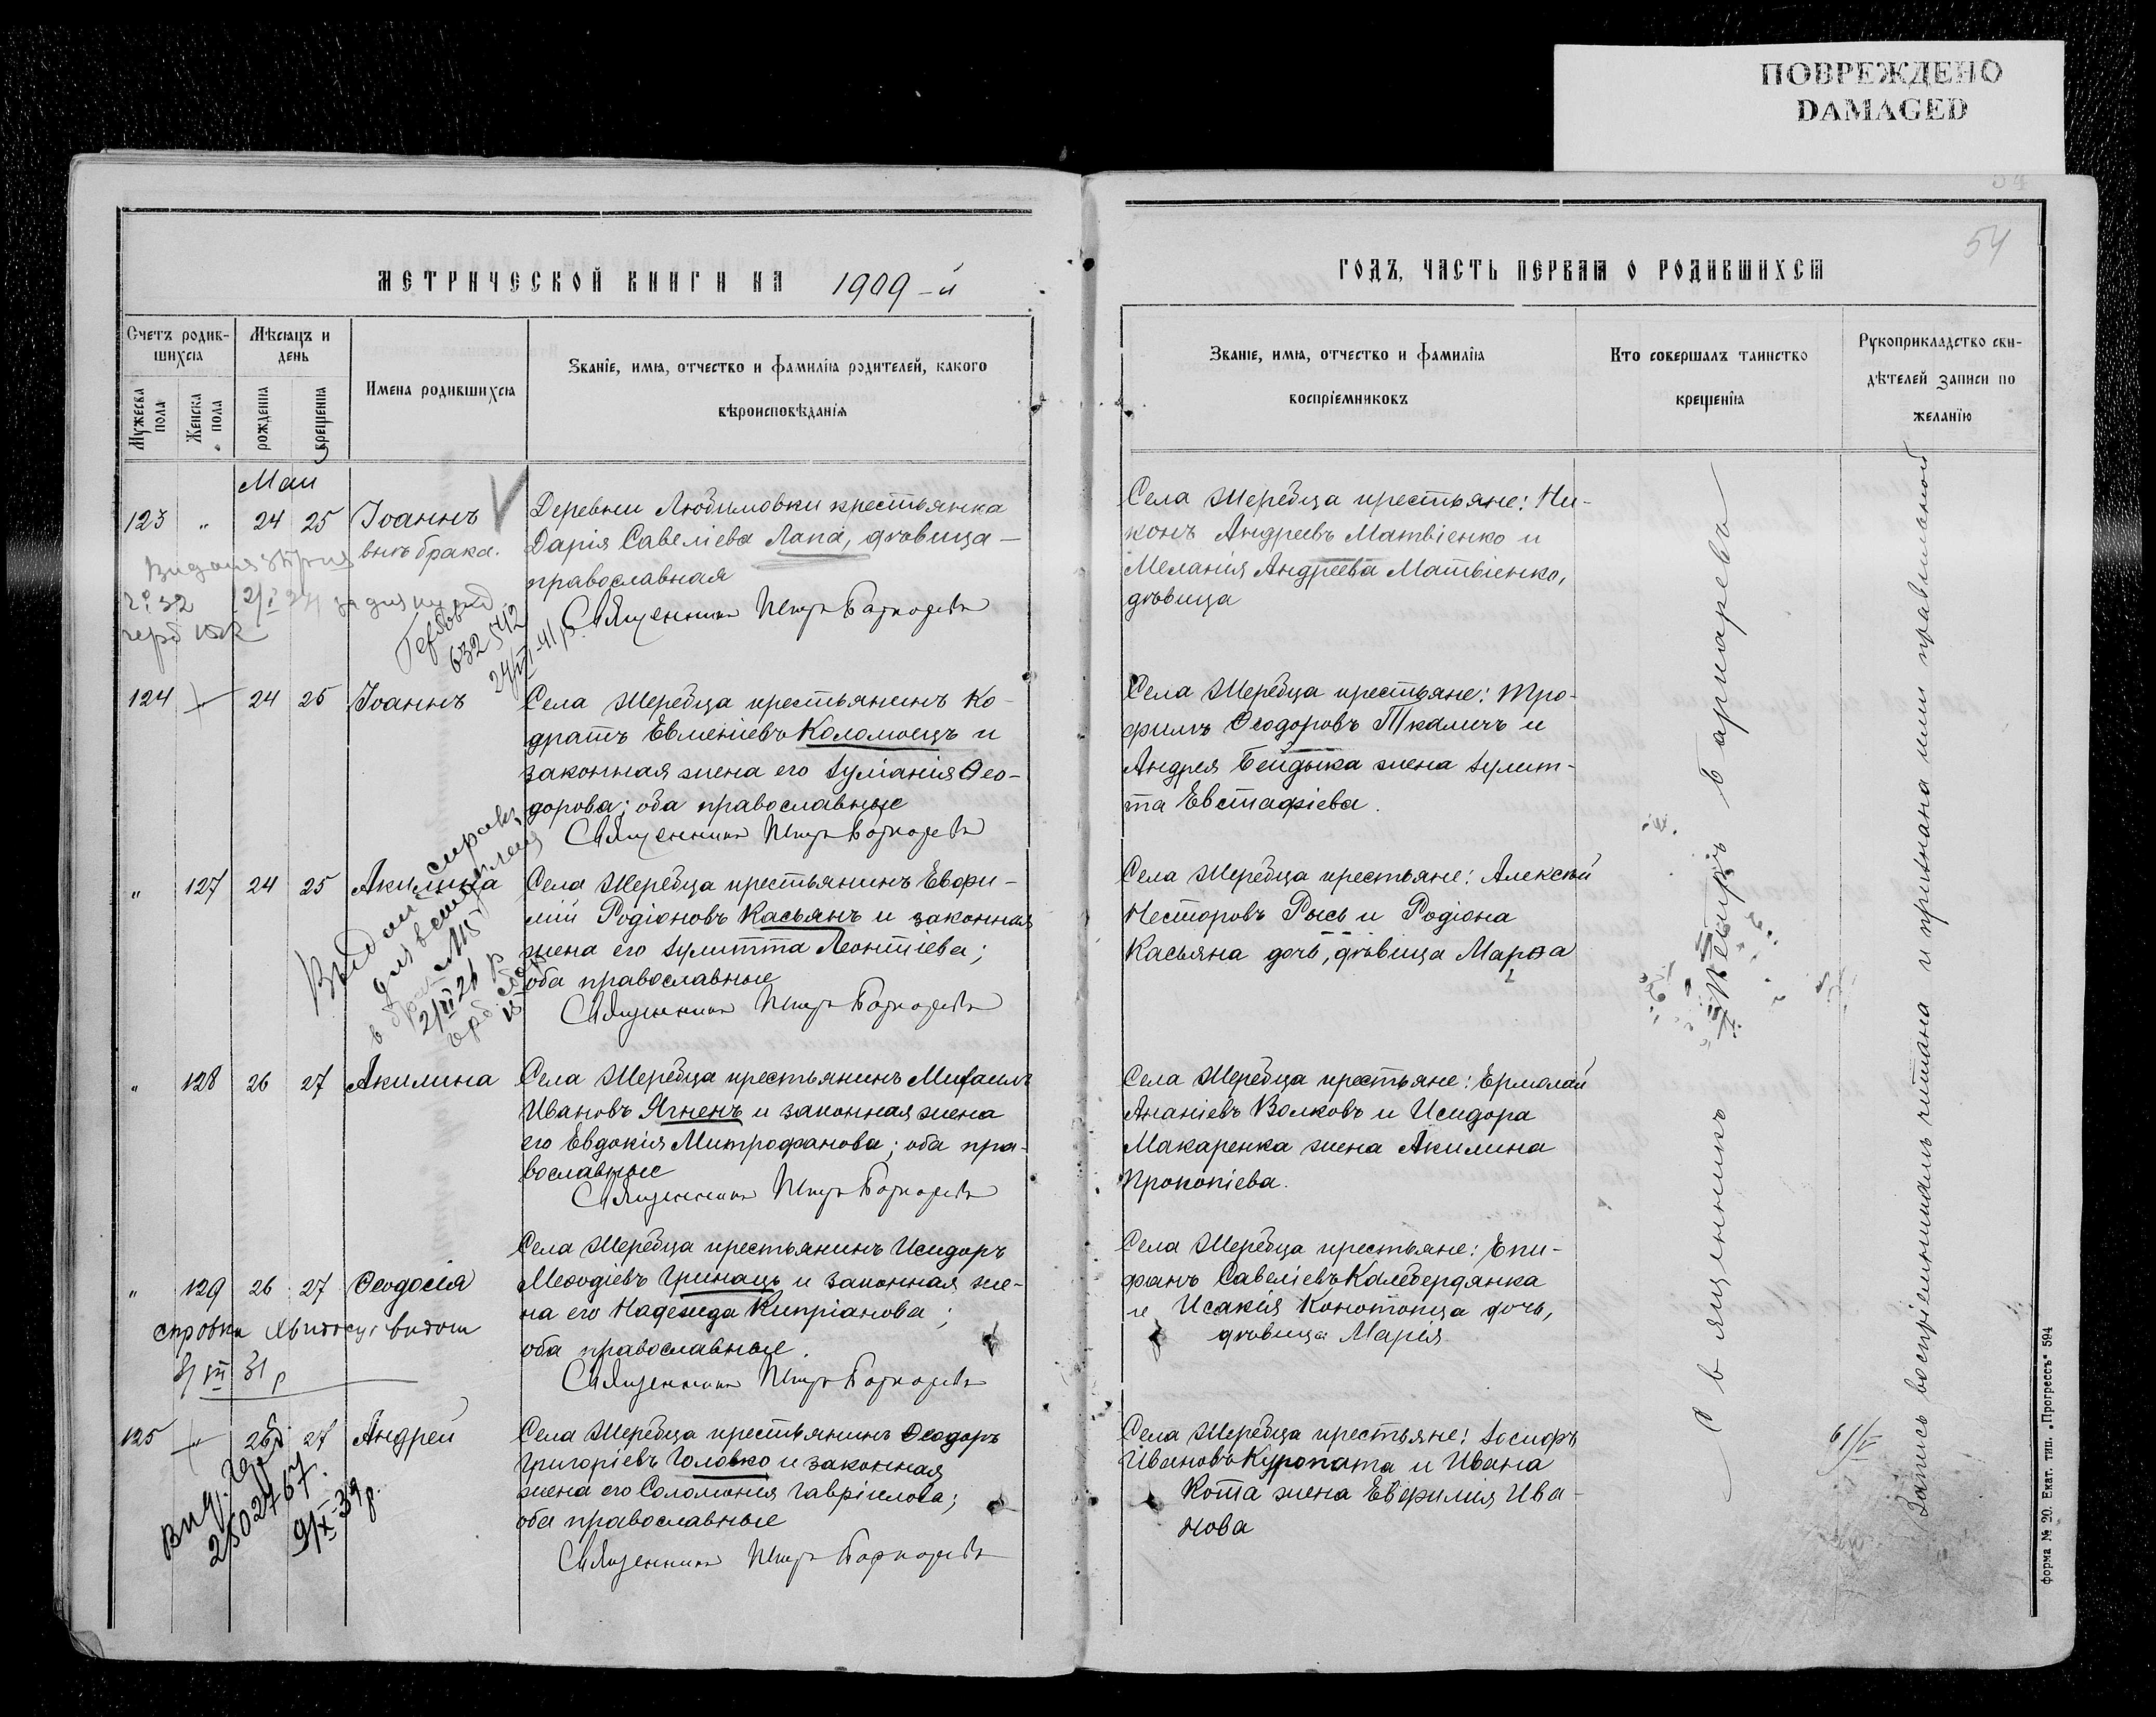 ПОВРЕЖДЕНО
DAMAGED
54
МЕТРИЧЕСКОЙ КНИГИ НА 1909-й
ГОДЪ, ЧАСТЬ ПЕРВАЯ О РОДИВШИХСЯ
Счетъ родив-
шихся
Мужеска
пола
Женска
пола
Мѣсяцъ и
день
рожденія
крещенія
Имена родившихся
Званіе, имя, отчество и фамилія родителей, какого
вѣроисповѣданія
Званіе, имя, отчество и фамилія
воспріемниковъ
Кто совершалъ таинство
крещенія
Рукоприкладство сви-
дѣтелей записи по
желанію
Май
123 " 24 25 Іоаннъ
внѣ брака.
Деревни Любимовки крестьянка
Дарія Савеліева Лапа, дѣвица -
православная
Священникъ Петръ Боткаревъ
Села Жеребца крестьяне: Ни-
конъ Андреевъ Матвіенко и
Меланія Андреева Матвіенко,
дѣвица
№ 32
632512
24/VII-41 р.
124 " 24 25 Іоаннъ
Села Жеребца крестьянинъ Ко-
дратъ Евменіевъ Коломоецъ и
законная жена его Іуліанія Ѳео-
дорова; оба православные
Священникъ Петръ Боткаревъ
Села Жеребца крестьяне: Тро-
фимъ Ѳеодоровъ Ткаличъ и
Андрея Бейдыка жена Іулит-
та Евстафіева.
" 127 24 25 Акилина
Села Жеребца крестьянинъ Евфи-
мій Родіоновъ Касьянъ и законная
жена его Іулитта Леонтіева;
оба православные
Священникъ Петръ Боткаревъ
Села Жеребца крестьяне: Алексѣй
Несторовъ Рысь и Родіона
Касьяна дочь, дѣвица Марѳа
" 128 26 27 Акилина
Села Жеребца крестьянинъ Михаилъ
Ивановъ Ягненъ и законная жена
его Евдокія Митрофанова; оба пра-
вославные
Священникъ Петръ Боткаревъ
Села Жеребца крестьяне: Ермолай
Ананіевъ Волковъ и Исидора
Макаренка жена Акилина
Прокопіева.
" 129 26 27 Ѳеодосія
Села Жеребца крестьянинъ Исидоръ
Меѳодіевъ Гринацъ и законная же-
на его Надежда Кипріанова;
оба православные.
Священникъ Петръ Боткаревъ
Села Жеребца крестьяне: Епи-
фанъ Савеліевъ Калебердянка
и Исакія Конотопца дочь,
дѣвица Марія
VII 31 р
125 " 26 27 Андрей
Села Жеребца крестьянинъ Ѳеодоръ
Григоріевъ Головко и законная
жена его Соломонія Гавріилова;
оба православные
Священникъ Петръ Боткаревъ
Села Жеребца крестьяне: Іосифъ
Ивановъ Куропата и Ивана
Кота жена Евфимія Ива-
нова
Вид.
2502767.
9/X-39 р.
Священникъ Петръ
Запись воспріемникамъ читана и признана ими правильной
форма № 20. Екат. тип. „Прогрессъ" 594